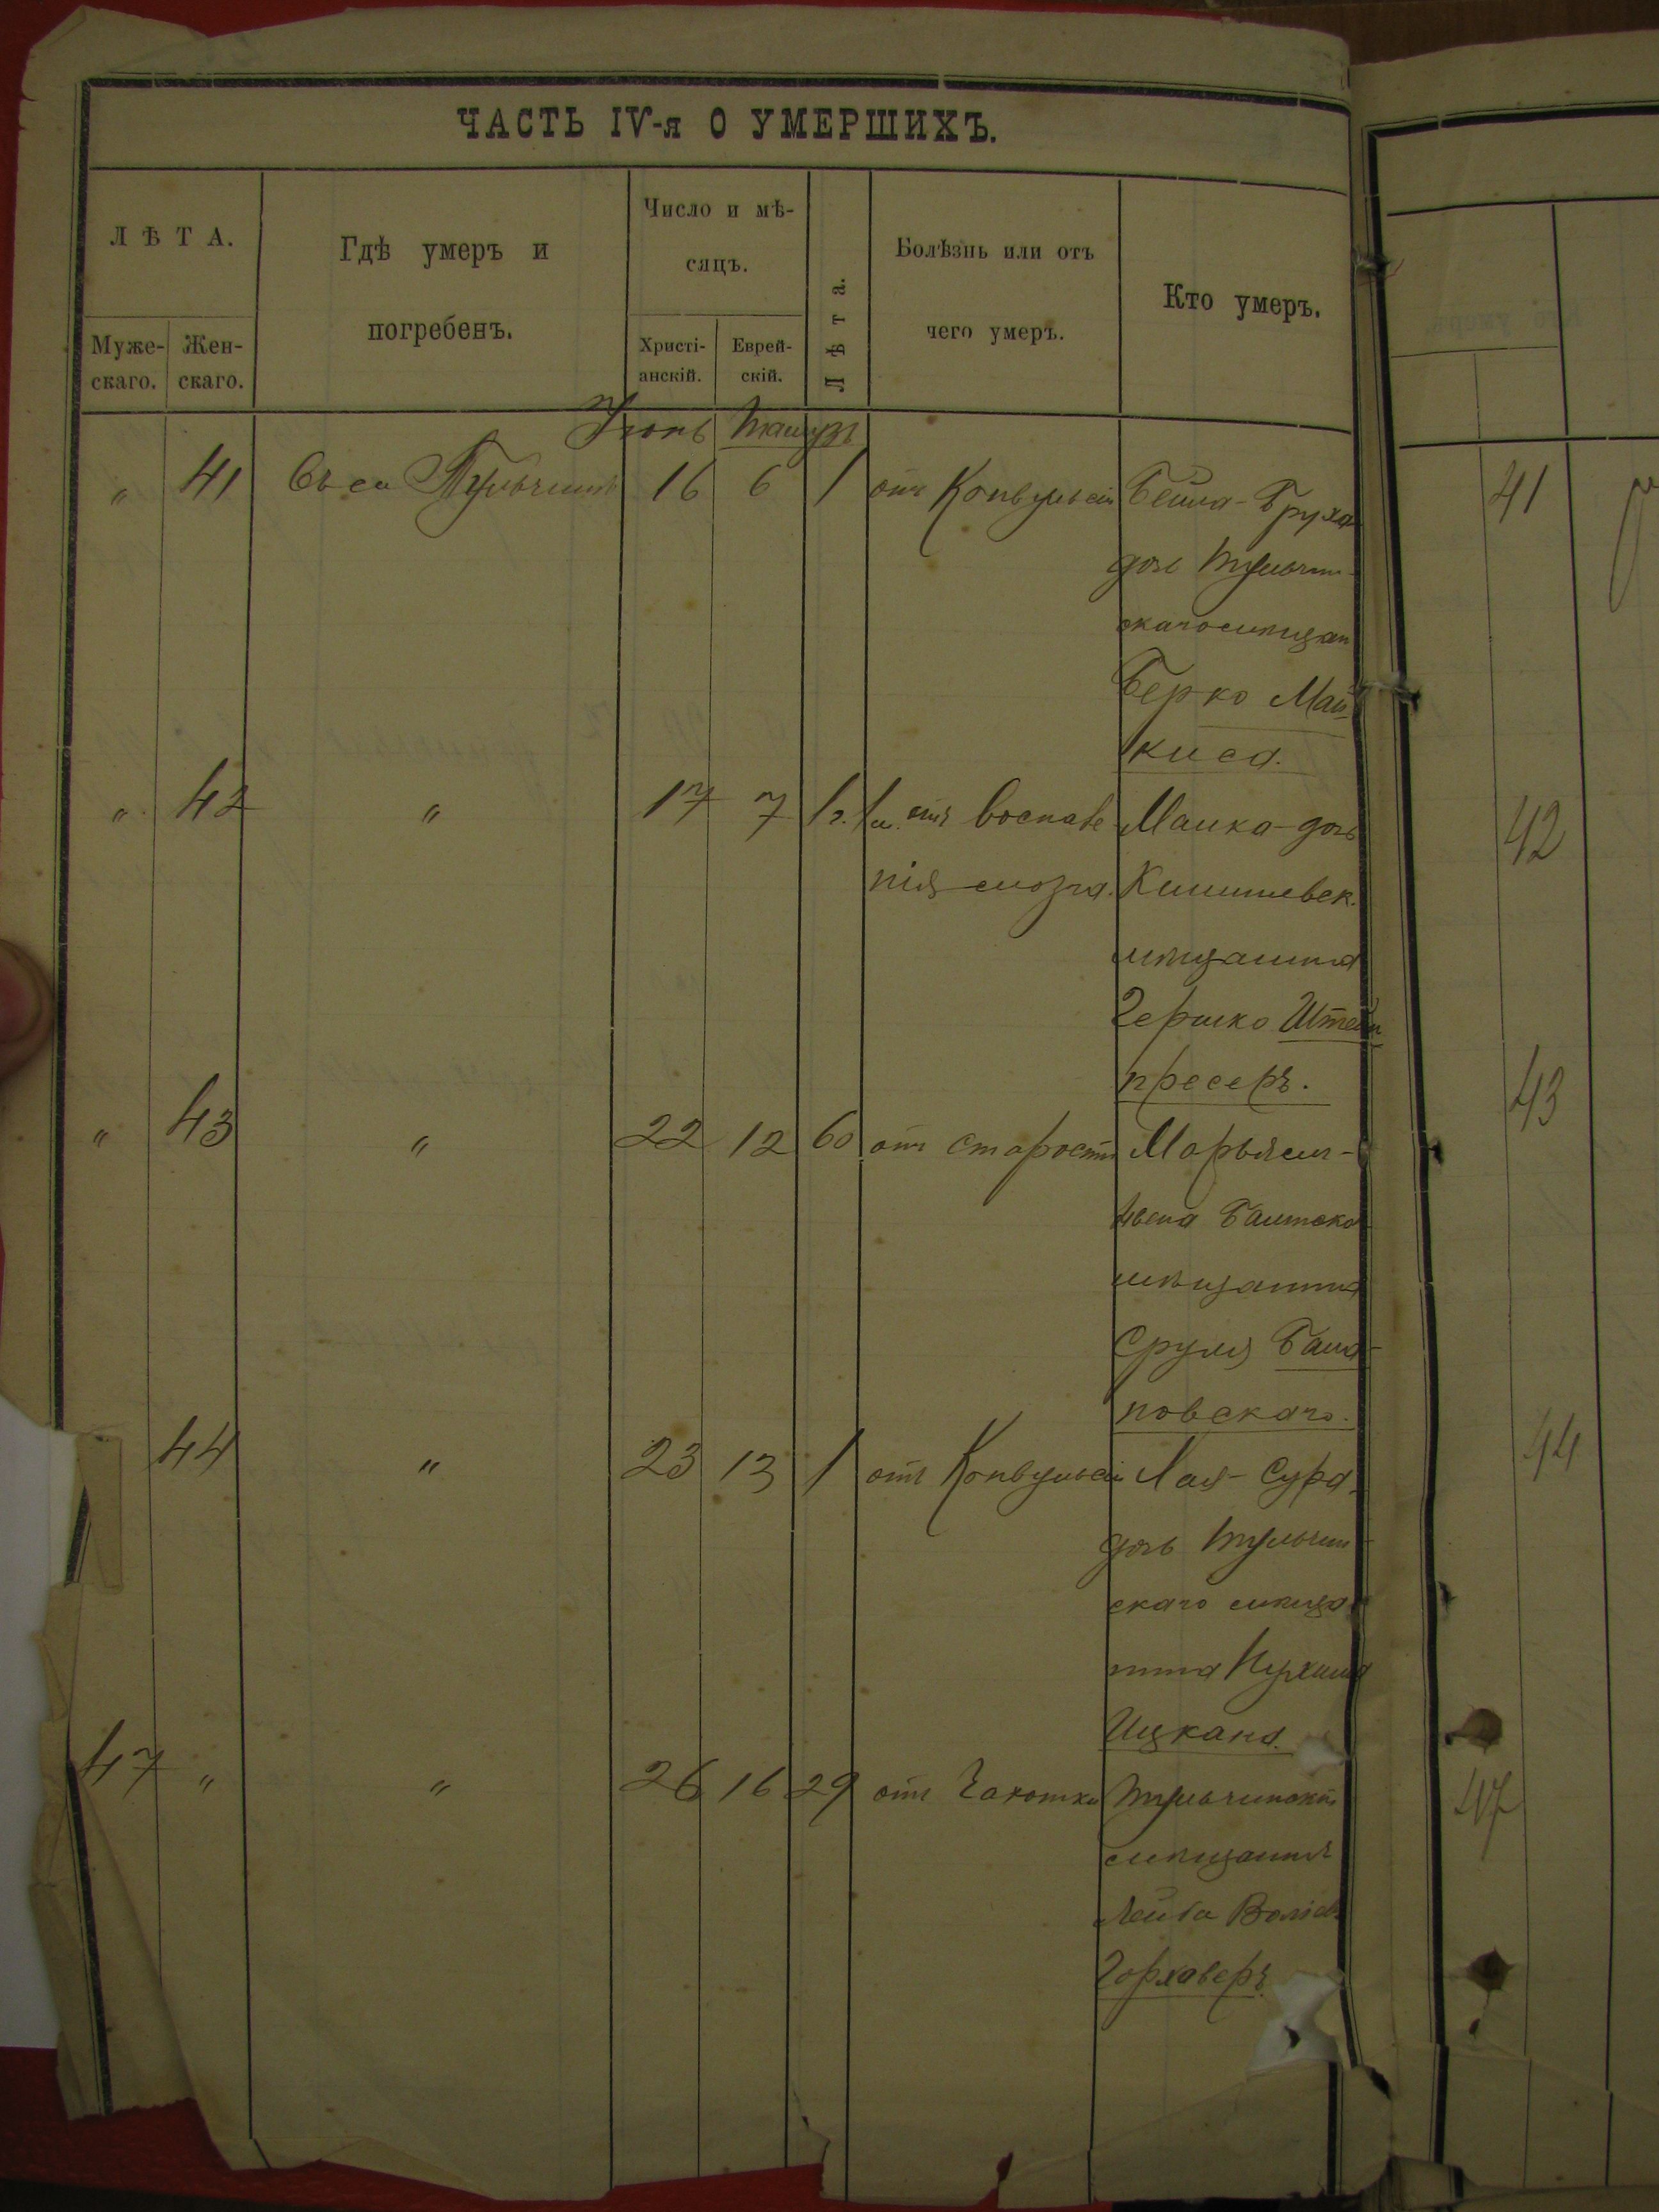 ЧАСТЬ IV-я О УМЕРШИХЪ.
ЛѢТА.
Мужескаго.
Женскаго.
Гдѣ умеръ и
погребенъ.
Число и мѣ-
сяцъ.
Христі-
анскій.
Еврей-
скій.
Лѣта.
Болѣзнь или отъ
чего умеръ.
Кто умеръ.
Іюнь Тамузъ
" 41 Тульчинѣ 16 6 1 отъ Конвульсіи Бейла-Бруха
дочь Тульчин-
скаго мѣщан
Берко Май-
киса.
" 42 " 17 7 1г. 1м. отъ воспале
нія мозга. Малка-дочь
Кишиневск.
мѣщанина
Гершко Штейн
пресеръ.
" 43 " 22 12 60 отъ старости Марьям-
жена Балтска
мѣщанина
Сруля Бала-
новскаго.
44 " 23 13 1 отъ Конвульсіи Лая-Сура
дочь Тульчин
скаго мѣща
нина Нухима
Ицкана.
47 " " 26 16 29 отъ Чахотки Тульчинскій
мѣщанинъ
Лейба
Горховеръ
41
42
43
44
47